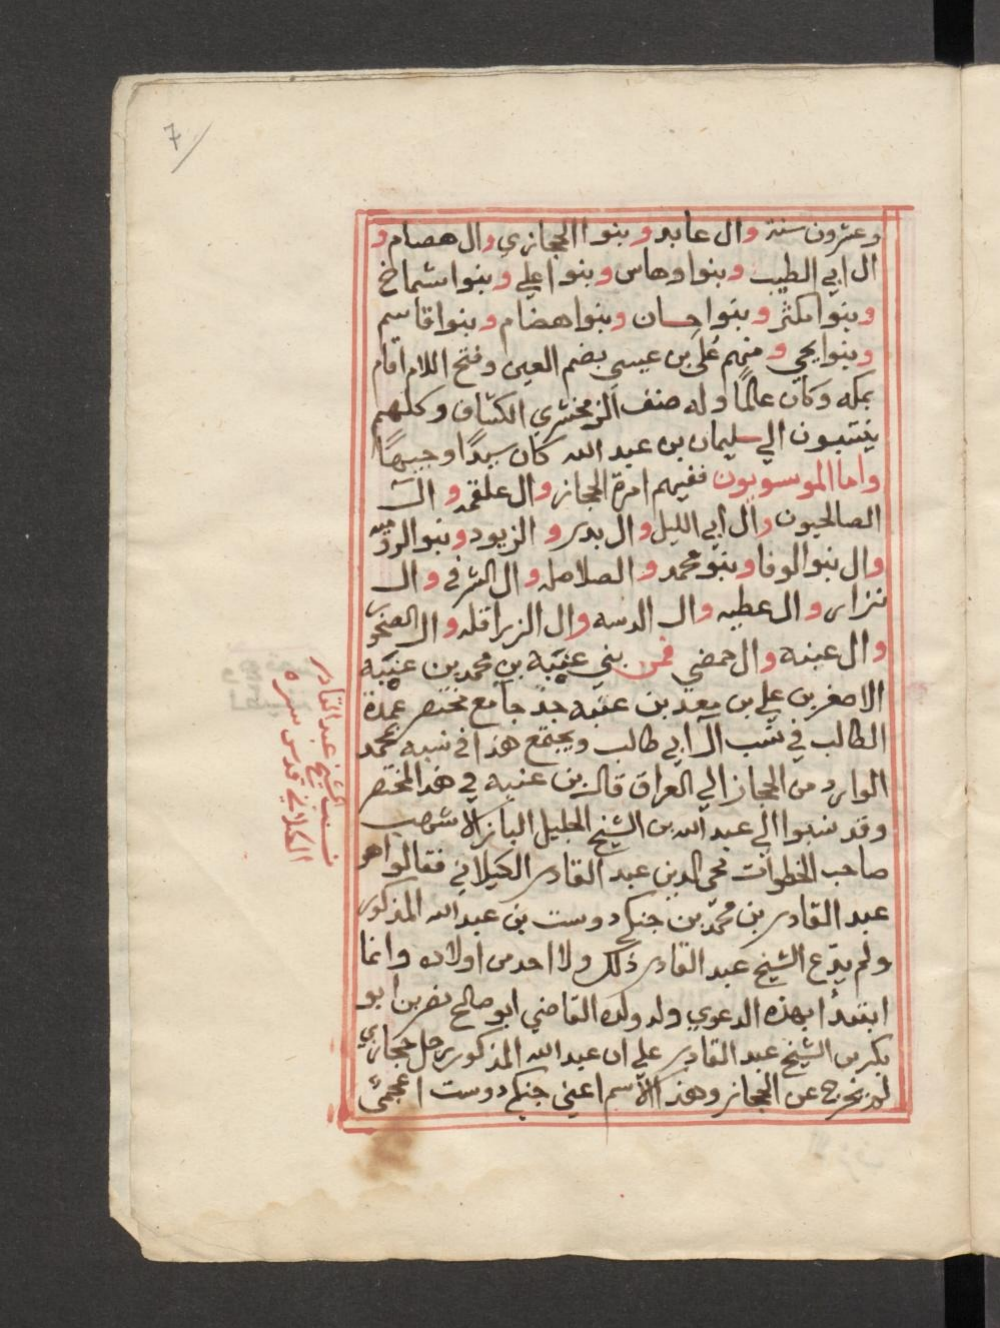 7
وعشرون سنة وال عابد وبنوا الحجازي وال هصام و
ال ابي الطيب وبنوا وهاس وبنوا علي وبنوا شماخ
وبنوا مكثر وبنوا حسان وبنوا هضام وبنوا قاسم
وبنوا يحي و منهم عُلَي بن عيسي بضم العين وفتح اللام اقام
بمكه وكان عالمًا وله صنف الزمخشري الكشاف وكلهم
ينتسبون الي سليمان بن عبد الله كان سيدًا وجيهًا
واما الموسويون ففيهم امرة الحجاز وال علقمه و ال
الصالحيون وال ابي الليل وال بدر و الزيود وبنو
وال بنو الوفا وبنو محمد و الصلاصله وال الشرفي و ال
نزار وال عطيه وال وال الزراقله و ال
وال عبنه وال حمضي فمن بني عنبَة بن محمد بن عنبَة
الاصغر بن علي بن معد بن عنبه جدّ جامع مختصر عمدة
الطالب في نسب آل ابي طالب ويجتمع هذا في نسبه بمحمد
الوارد من الحجاز الي العراق قال بن عنبه في هذا المختصر
وقد نسبوا الي عبد الله بن الشيخ الجليل الباز الاشهب
صاحب الخطوات محي الدين عبد القادر الكيلاني فقالوا هو
عبد القادر بن محمّد بن جنكي دوست بن عبد الله المذكور
ولم يدّع الشيخ عبد القادر ذلك ولا احد من اولاده وانما
ابتدأ بهذه الدعوي ولد ولده القاضي ابو صالح نصر بن ابو
بكر بن الشيخ عبد القادر علي ان عبد الله المذكور رجل حجازي
لم يخرج عن الحجاز وهذا الاسم اعني جنكي دوست اعجمي
نسب الشيخ عبد القادر
الكيلاني قدس سره